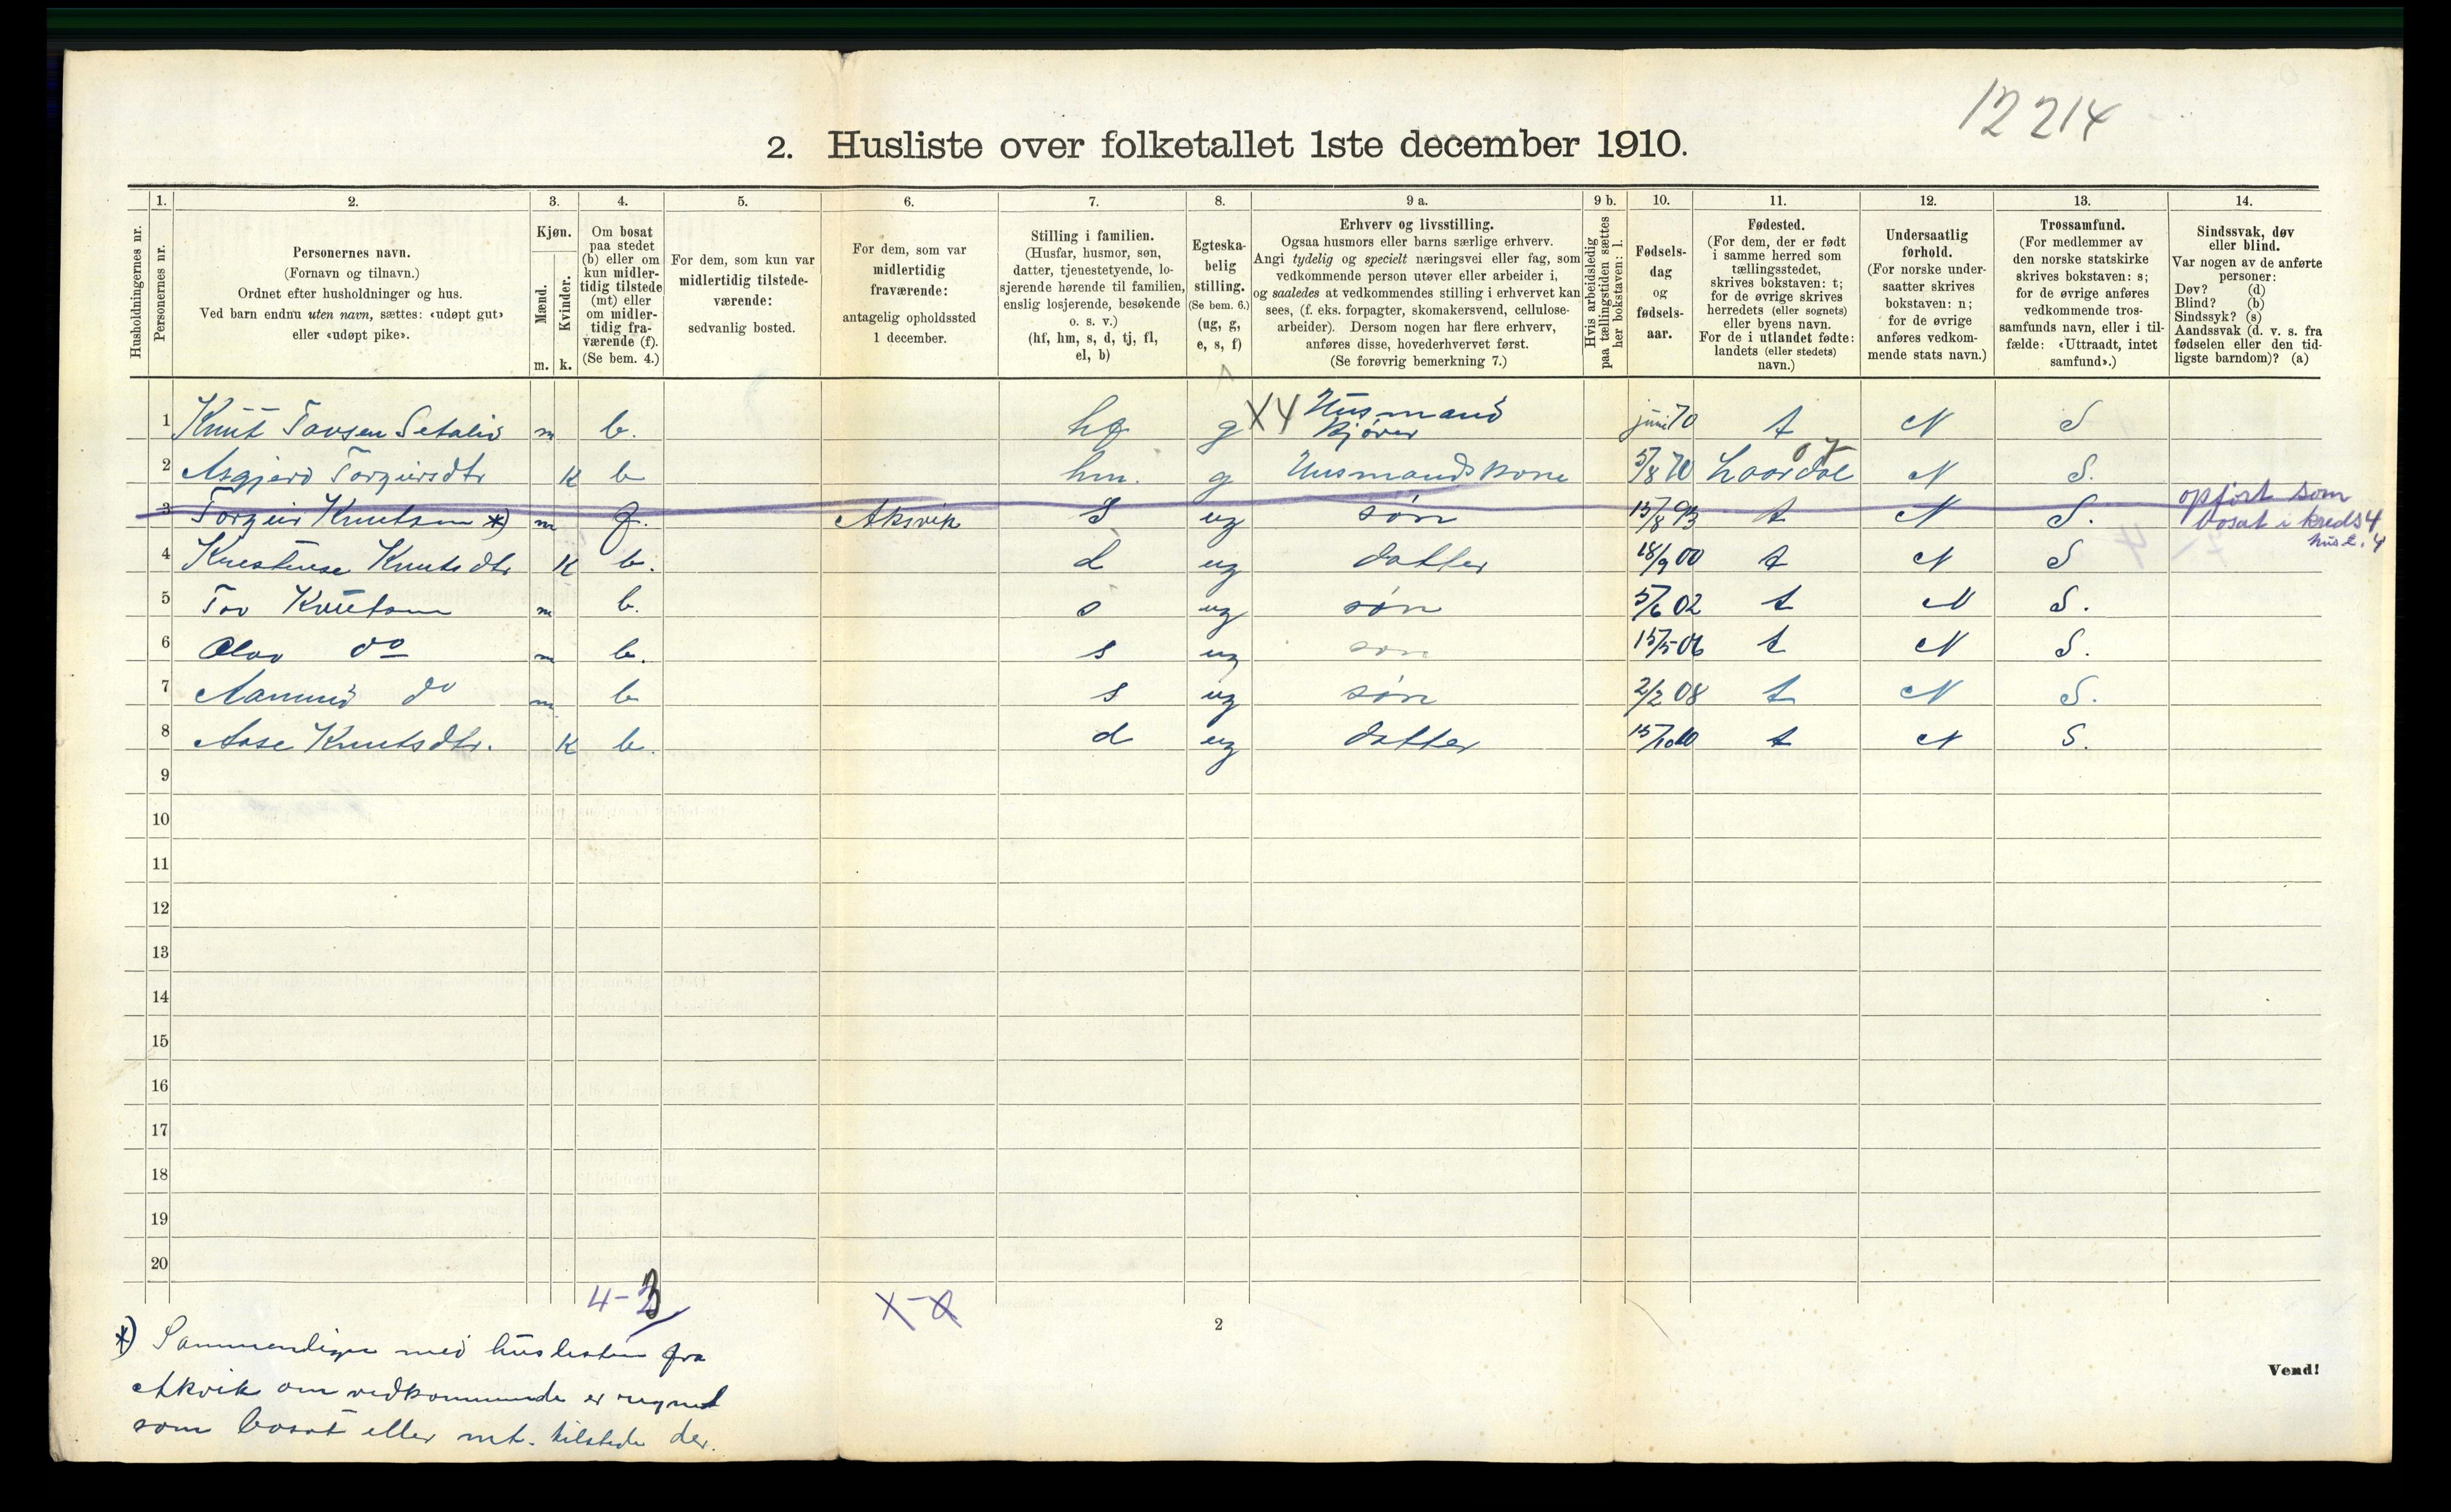 12214
2. Husliste over folketallet 1ste december 1910.
Husholdningernes nr.
1. Personernes nr.
2. Personernes navn. (Fornavn og tilnavn.) Ordnet efter husholdninger og hus. Ved barn endnu uten navn, sættes: «udøpt gut» eller «udøpt pike».
3. Kjøn. Mænd. m. Kvinder. k.
4. Om bosat paa stedet (b) eller om kun midlertidig tilstede (mt) eller om midlertidig fraværende (f). (Se bem. 4.)
5. For dem, som kun var midlertidig tilstedeværende: sedvanlig bosted.
6. For dem, som var midlertidig fraværende: antagelig opholdssted 1 december.
7. Stilling i familien. (Husfar, husmor, søn, datter, tjenestetyende, losjerende hørende til familien, enslig losjerende, besøkende o. s. v.) (hf, hm, s, d, tj, fl, el, b)
8. Egteskabelig stilling. (Se bem. 6.) (ug, g, e, s, f)
9 a. Erhverv og livsstilling. Ogsaa husmors eller barns særlige erhverv. Angi tydelig og specielt næringsvei eller fag, som vedkommende person utøver eller arbeider i, og saaledes at vedkommendes stilling i erhvervet kan sees, (f. eks. forpagter, skomakersvend, cellulosearbeider). Dersom nogen har flere erhverv, anføres disse, hovederhvervet først. (Se forøvrig bemerkning 7.)
9 b. Hvis arbeidsledig paa tællingstiden sættes her bokstaven: l.
10. Fødselsdag og fødselsaar.
11. Fødested. (For dem, der er født i samme herred som tællingsstedet, skrives bokstaven: t; for de øvrige skrives herredets (eller sognets) eller byens navn. For de i utlandet fødte: landets (eller stedets) navn.)
12. Undersaatlig forhold. (For norske undersaatter skrives bokstaven: n; for de øvrige anføres vedkommende stats navn.)
13. Trossamfund. (For medlemmer av den norske statskirke skrives bokstaven: s; for de øvrige anføres vedkommende trossamfunds navn, eller i tilfælde: «Uttraadt, intet samfund».)
14. Sindssvak, døv eller blind. Var nogen av de anførte personer: Døv? (d) Blind? (b) Sindssyk? (s) Aandssvak (d. v. s. fra fødselen eller den tidligste barndom)? (a)
1 Knut Tovsen Setalid m b. hf g X4 Husmand kjører juni 70 t N S
2 Asgjerd Torgeirsdtr k b hm. g Husmandskone 5/8 70 Laardal 07 N S.
3 Torgeir Knutsen *) m f. Aksvik S ug søn 15/8 93 t N S. opført som bosat i kreds 4 husl. 4
4 Knestense Knutsdtr k b. d ug datter 18/9 00 t N S
5 Tov Knutsen m b. s ug søn 5/6 02 t N S.
6 Olav do m b. s ug søn 15/5 06 t N S.
7 Aamund do m b s ug søn 2/2 08 t N S.
8 Aase Knutsdtr. k b. d ug datter 15/10 10 t N S.
9
10
11
12
13
14
15
16
17
18
19
20
4-3
X-X
2
Vend!
*) Sammenlign med huslisten fra
Akvik om vedkommende er regnet
som bosat eller mt. tilstede der.